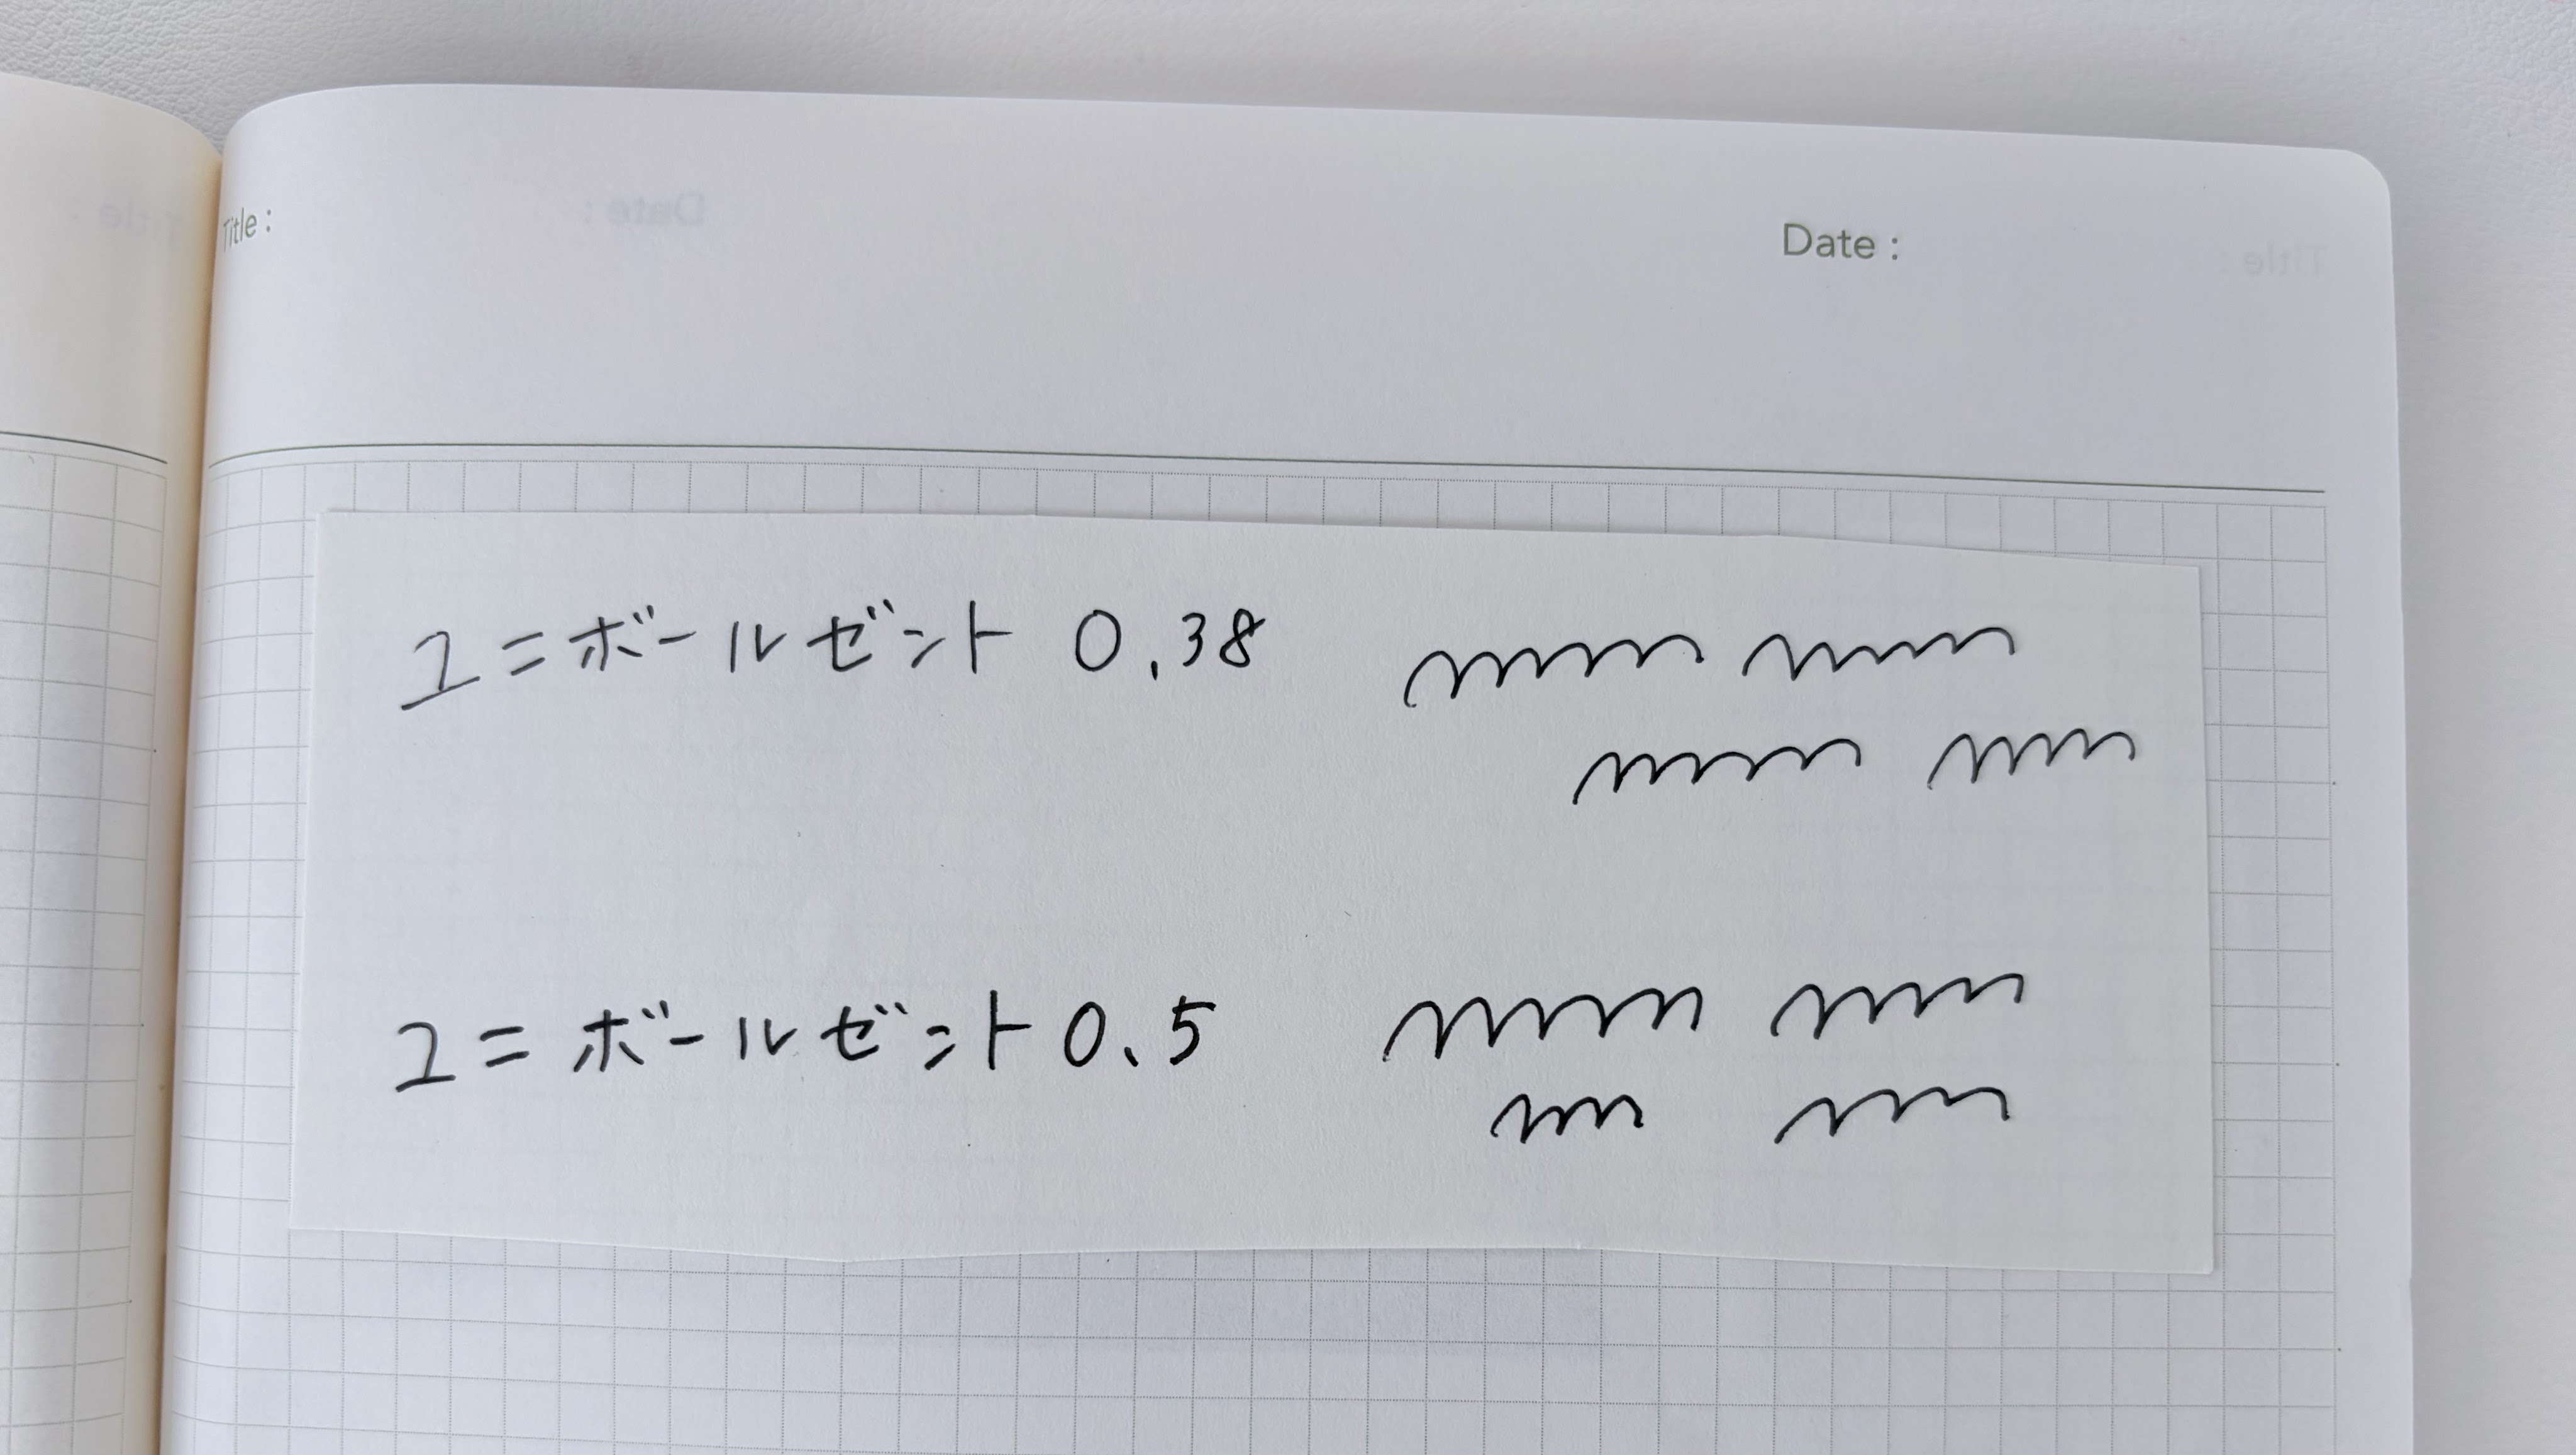 Title :
Date :
ユニボールゼント 0.38
ユニボールゼント 0.5